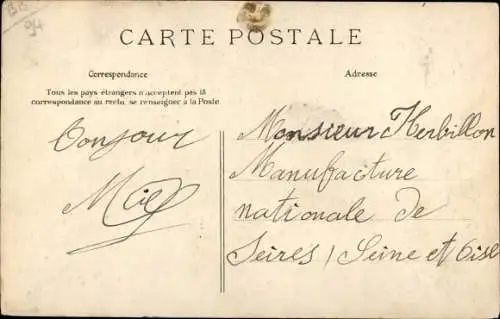 CARTE POSTALE
Correspondance
Tous les pays étrangers n'acceptent pas la
correspondance au recto, se renseigner à la Poste.
Bonjour
Adresse
Monsieur Herbillon
Manufacture
nationale de
Seires / Seine et Oise
94